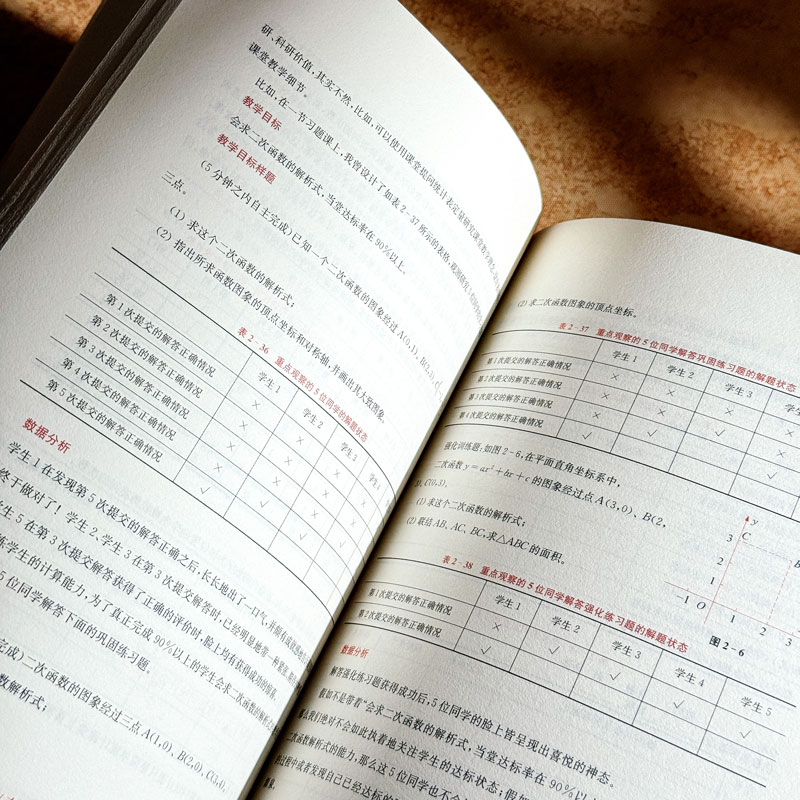 研、科研价值,其实不然,比如,可以使用课堂提问统计表定量研究课堂教学
课堂教学细节。
比如,在一节习题课上,我曾设计了如表2-37所示的表格,
教学目标
会求二次函数的解析式,当堂达标率在90%以上。
教学目标样题
(5分钟之内自主完成)已知一个二次函数的图象经过A(0,1),B(2,
三点。
(1)求这个二次函数的解析式;
(2)指出所求函数图象的顶点坐标和对称轴,并画出其大致图象。
表2-36 重点观察的5位同学的解题状态
学生1 学生2 学生3
第1次提交的解答正确情况 × × ×
第2次提交的解答正确情况 × × ×
第3次提交的解答正确情况 × √ √
第4次提交的解答正确情况 ×
第5次提交的解答正确情况 √
数据分析
学生1在发现第5次提交的解答正确之后,长长地出了一口气,
终于做对了!学生2、学生3在第3次提交解答时,已经明显地
生5在第3次提交解答获得了正确的评价时,脸上均有获得成功的
练学生的计算能力,为了真正完成90%以上的学生会求二次函数的解析式
5位同学解答下面的巩固练习题。
完成)二次函数的图象经过三点A(1,0),B(2,0),C(3,4),
数解析式;
(2)求二次函数图象的顶点坐标。
表2-37 重点观察的5位同学解答巩固练习题的解题状态
学生1 学生2 学生3
第1次提交的解答正确情况 × × ×
第2次提交的解答正确情况 × × ×
第3次提交的解答正确情况 × × ×
第4次提交的解答正确情况 √ √ √
强化训练题:如图2-6,在平面直角坐标系中,
二次函数y=ax²+bx+c的图象经过点A(3,0)、B(2,
3)、C(0,3)。
(1)求这个二次函数的解析式;
(2)联结AB、AC、BC,求△ABC的面积。
y
3 C B
2
1
-1 O 1 2 3
图2-6
表2-38 重点观察的5位同学解答强化练习题的解题状态
学生1 学生2 学生3 学生4 学生5
第1次提交的解答正确情况 × √ √ √ √
第2次提交的解答正确情况 √
数据分析
解答强化练习题获得成功后,5位同学的脸上皆呈现出喜悦的神态。
假如不是带着“会求二次函数的解析式,当堂达标率在90%以上
那么我们绝对不会如此执着地关注学生的达标状态;假如
二次函数解析式的能力,那么这5位同学也不会
的过程中或者发现自己已经达标的